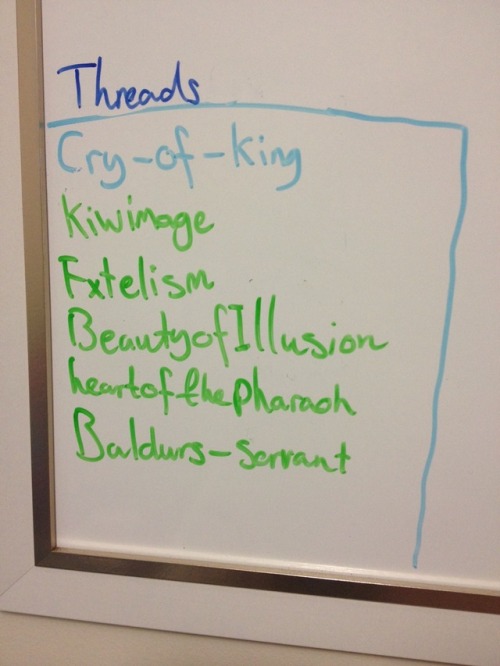 Threads
Cry-of-King
Kiwimage
Fxtelism
BeautyofIllusion
heartofthepharaoh
Baldurs-servant